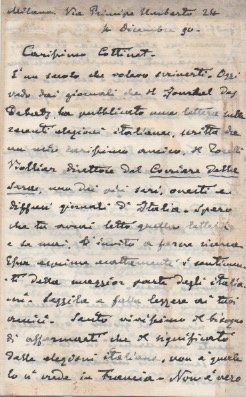 Milano. Via Principe Umberto 24
4 Dicembre 90.
Carissimo Cottinet.
È un secolo che volevo scriverti. Oggi
vedo dai giornali che il Journal des
Debats, ha pubblicato una lettera sulle
recenti elezioni italiane, scritta da
un mio carissimo amico, il Torelli
Viollier direttore del Corriere della
Sera, uno dei più seri, onesti e
diffusi giornali d'Italia. Spero
che tu avrai letto quella lettera
e se mai, ti invito a farne ricerca.
Essa esprime esattamente i sentimen-
ti della maggior parte degli Italia-
ni. Leggila e falla leggere ai tuoi
amici. Sento vivissimo il bisogno
di affermarti che il significato
delle elezioni italiane, non è quale
lo si vede in Francia. Non è vero